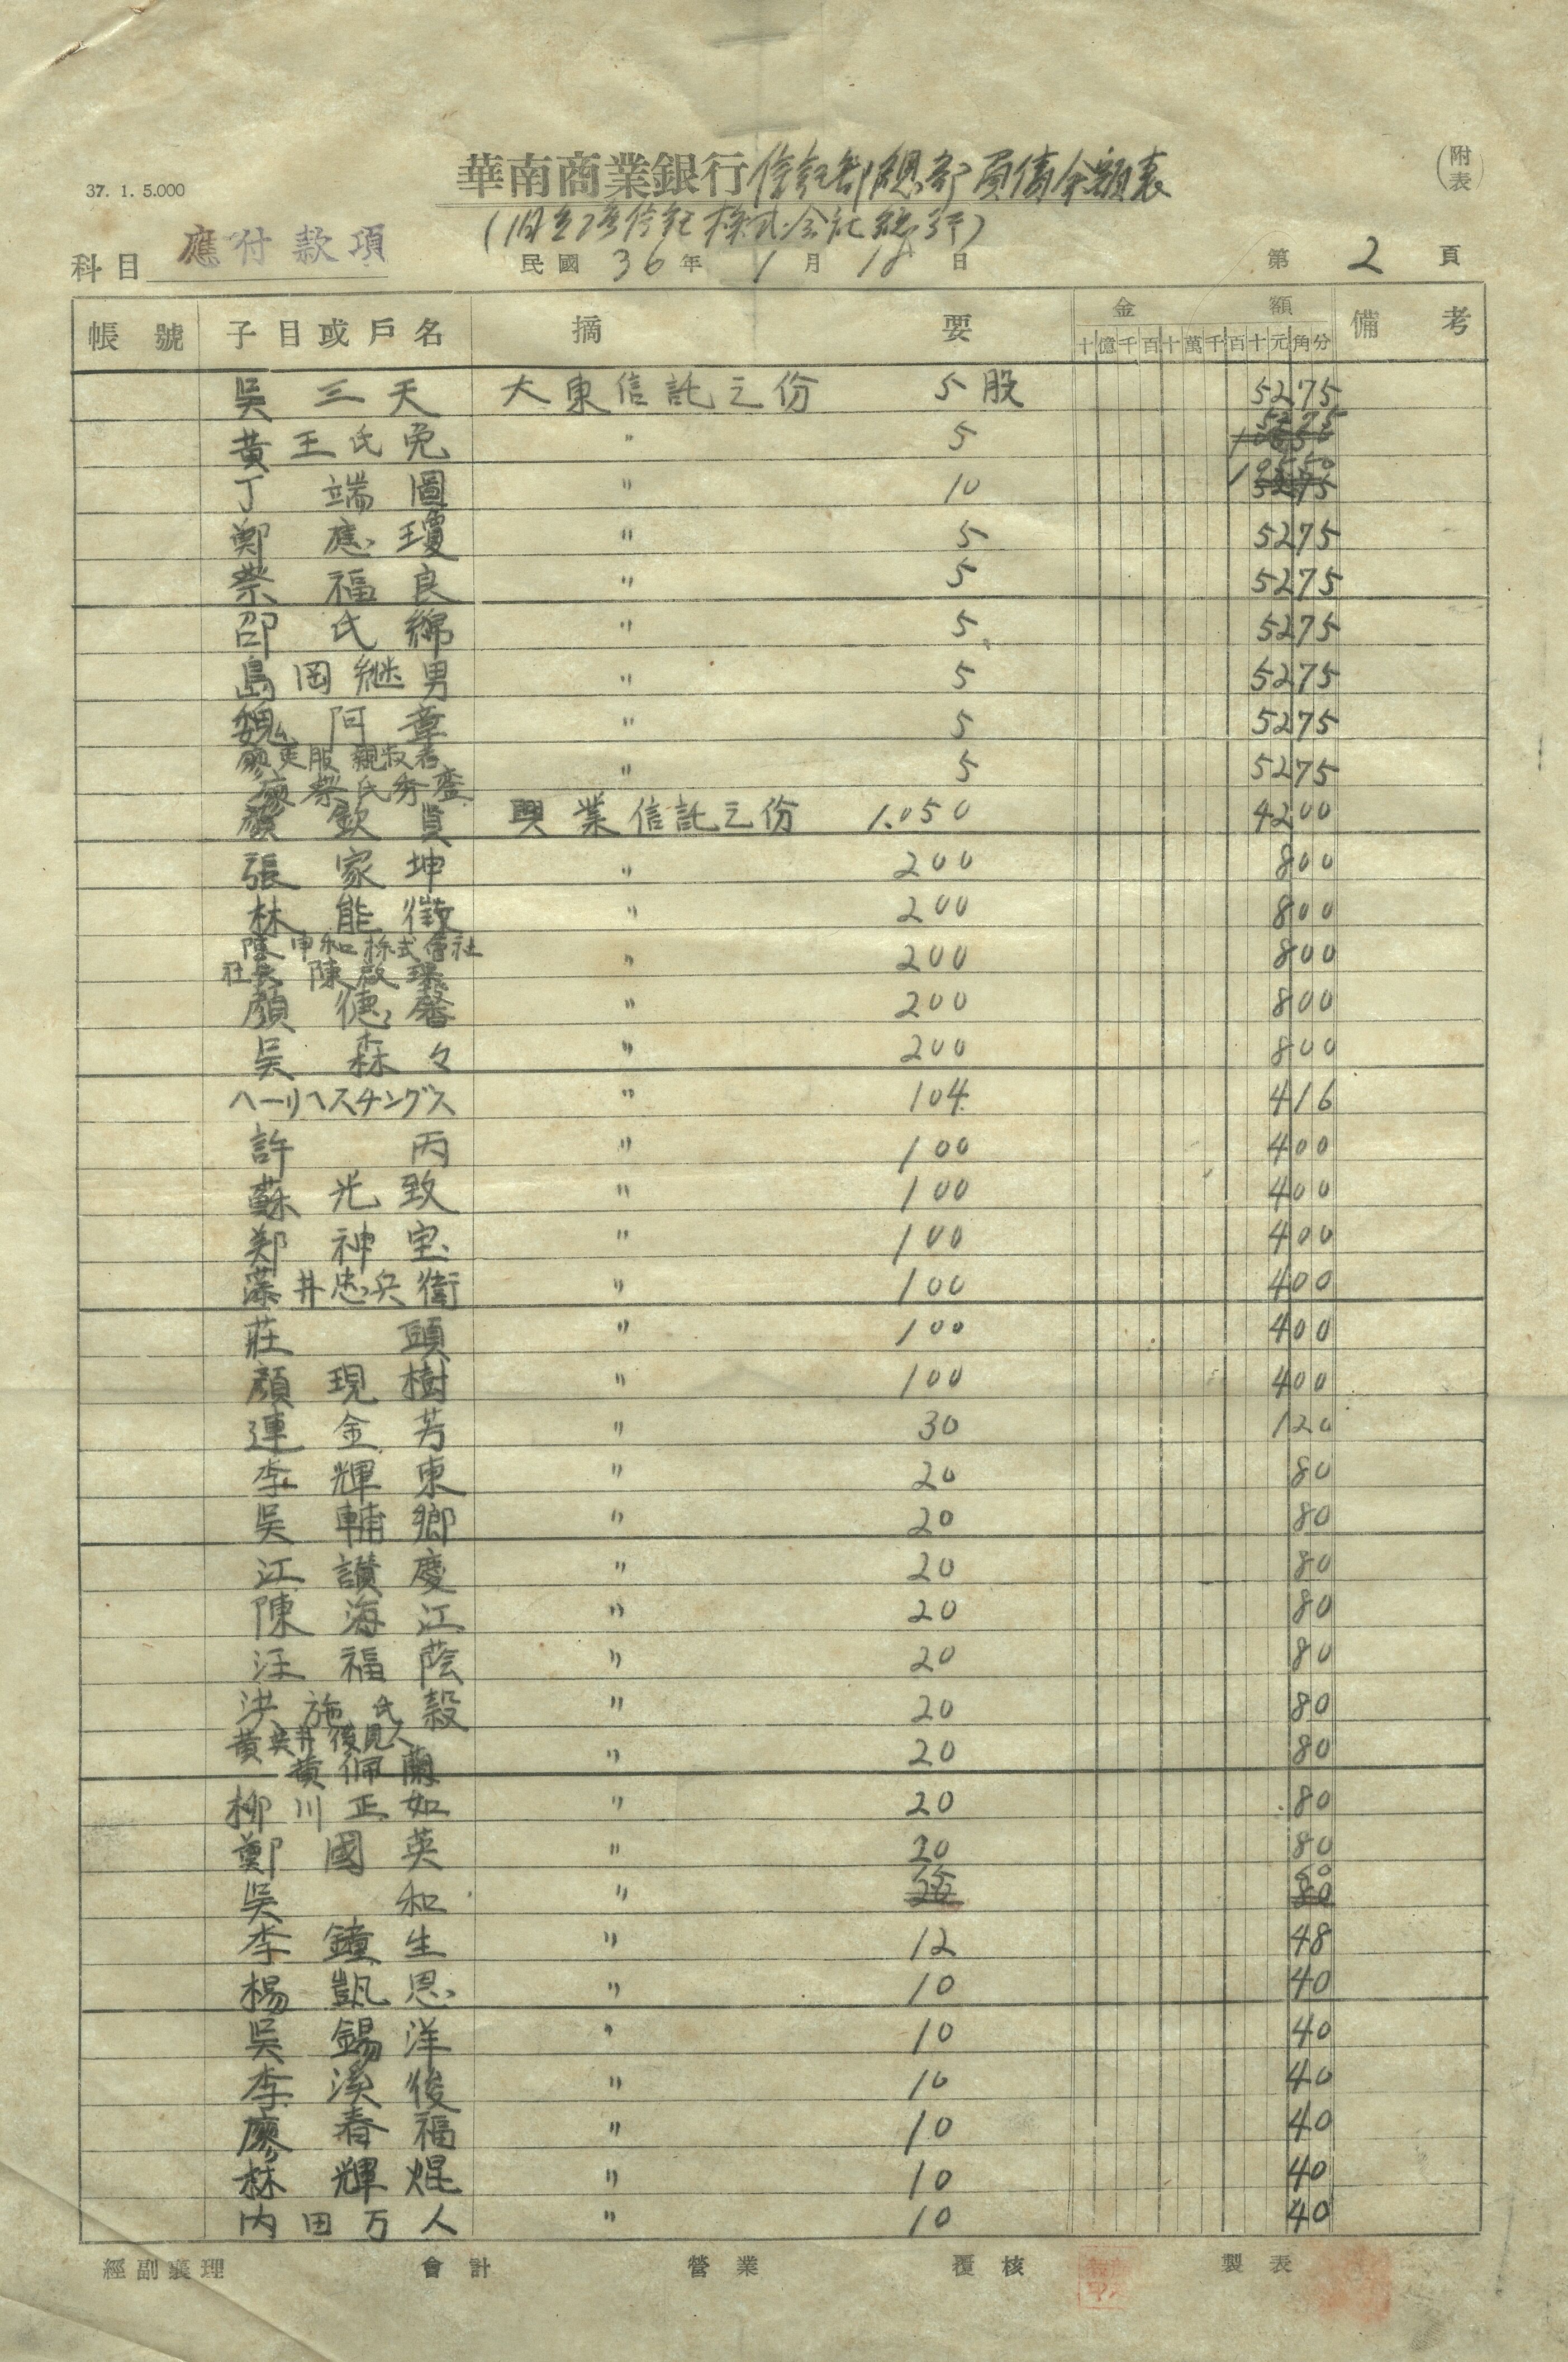 華南商業銀行信託部總部負債余額表
(附表)
37. 1. 5.000
(旧台湾信託株式会社総行)
科目 應付款項
民國 36 年 1 月 18 日
第 2 頁
帳號 子目或戶名 摘要 金額 備考
十億千百十萬千百十元角分
吳三天 大東信託之份 5股 5275
黃王氏兔 〃 5 5275
丁端圖 〃 10 10550
鄭應瓊 〃 5 5275
蔡福良 〃 5 5275
邵氏綿 〃 5 5275
島岡継男 〃 5 5275
魏阿章 〃 5 5275
廖 親权者
廖蔡氏 〃 5 5275
顏欽員 興業信託之份 1.050 4200
張家坤 〃 200 800
林能徵 〃 200 800
陳中和株式會社
社長 陳啟 〃 200 800
顏德馨 〃 200 800
吳森々 〃 200 800
ハーリヘスチングス 〃 104 416
許丙 〃 100 400
蘇光致 〃 100 400
鄭神宝 〃 100 400
藤井忠兵衛 〃 100 400
莊頭 〃 100 400
顏現樹 〃 100 400
連金芳 〃 30 120
李輝東 〃 20 80
吳輔鄉 〃 20 80
江讚慶 〃 20 80
陳海江 〃 20 80
汪福蔭 〃 20 80
洪施氏穀 〃 20 80
黃 井後見人
黃佩蘭 〃 20 80
柳川正如 〃 20 80
鄭國英 〃 20 80
吳和 〃 15 60
李鐘生 〃 12 48
楊凱恩 〃 10 40
吳錫洋 〃 10 40
李溪俊 〃 10 40
廖春福 〃 10 40
林輝焜 〃 10 40
內田万人 〃 10 40
經副襄理 會計 營業 覆核 製表